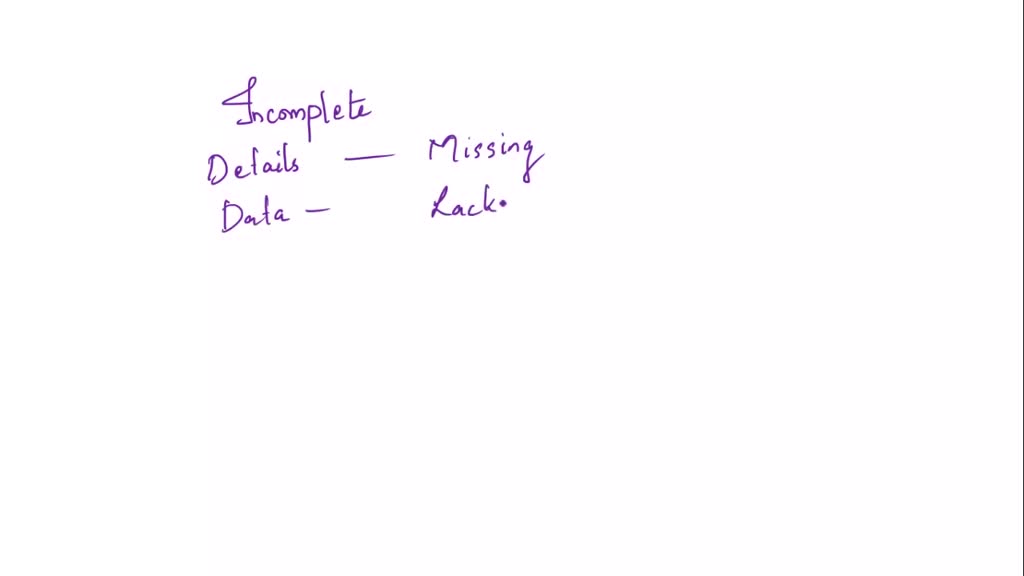 Incomplete
Details — Missing
Data — Lack.